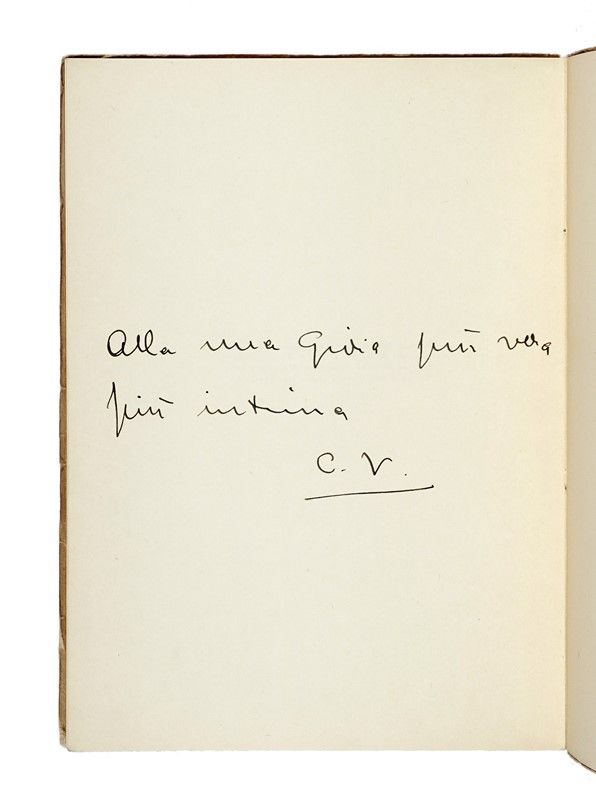 Alla mia Gioia più vera
più intima
C. V.